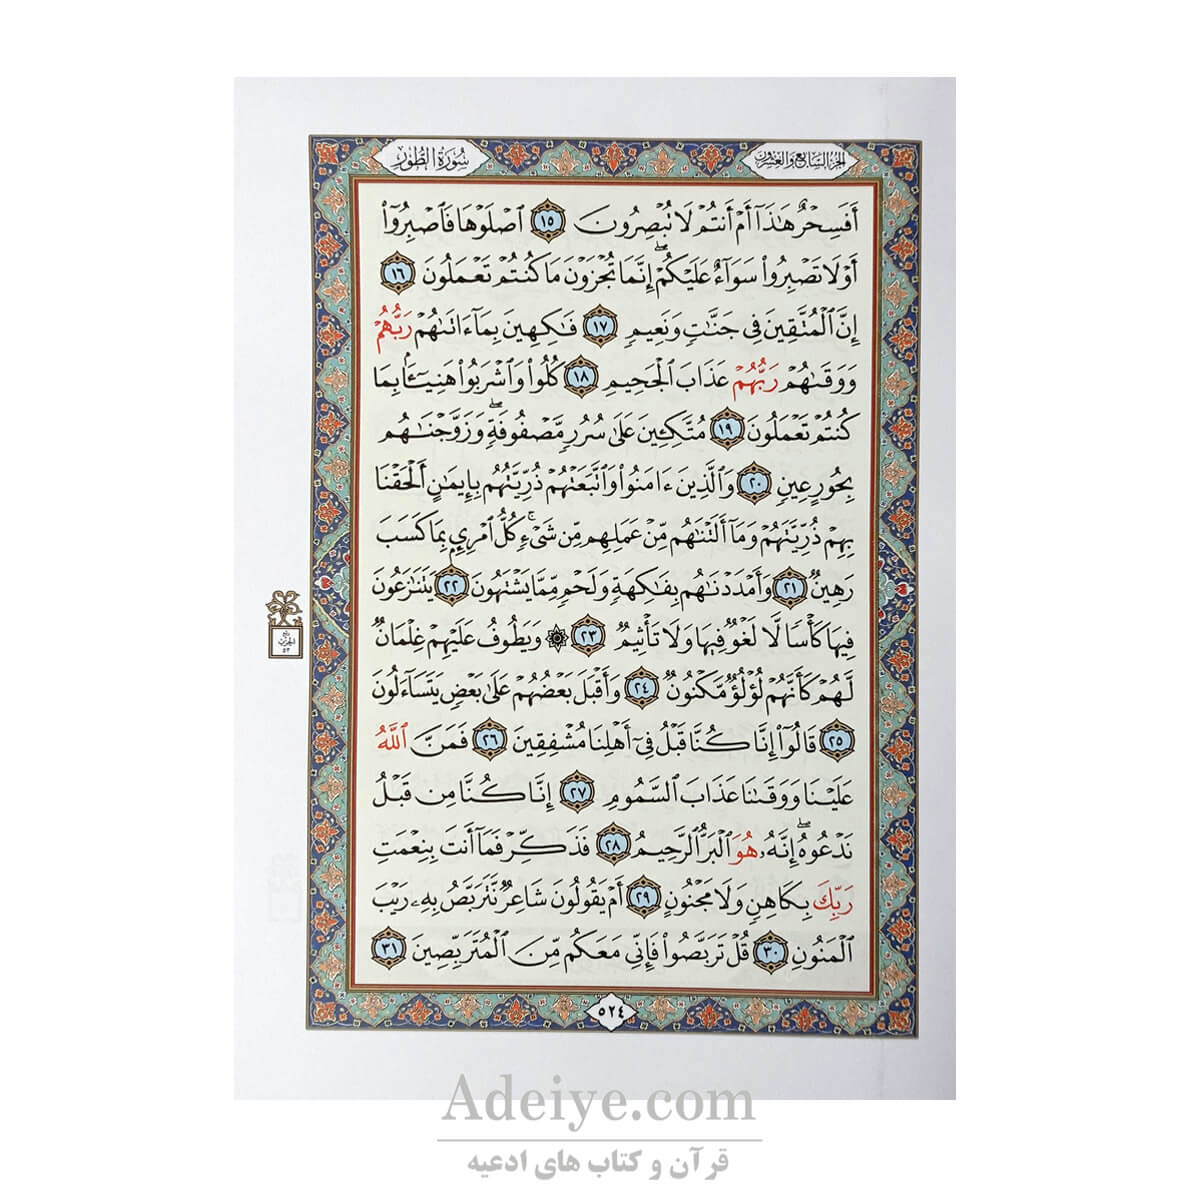 الجزء السابع والعشرون
سورة الطور
أَفَسِحْرٌ هَٰذَآ أَمْ أَنتُمْ لَا تُبْصِرُونَ ١٥ ٱصْلَوْهَا فَٱصْبِرُوٓا۟
أَوْ لَا تَصْبِرُوا۟ سَوَآءٌ عَلَيْكُمْ ۖ إِنَّمَا تُجْزَوْنَ مَا كُنتُمْ تَعْمَلُونَ ١٦
إِنَّ ٱلْمُتَّقِينَ فِى جَنَّٰتٍ وَنَعِيمٍ ١٧ فَٰكِهِينَ بِمَآ ءَاتَىٰهُمْ رَبُّهُمْ
وَوَقَىٰهُمْ رَبُّهُمْ عَذَابَ ٱلْجَحِيمِ ١٨ كُلُوا۟ وَٱشْرَبُوا۟ هَنِيٓـًٔۢا بِمَا
كُنتُمْ تَعْمَلُونَ ١٩ مُتَّكِـِٔينَ عَلَىٰ سُرُرٍ مَّصْفُوفَةٍ ۖ وَزَوَّجْنَٰهُم
بِحُورٍ عِينٍ ٢٠ وَٱلَّذِينَ ءَامَنُوا۟ وَٱتَّبَعَتْهُمْ ذُرِّيَّتُهُم بِإِيمَٰنٍ أَلْحَقْنَا
بِهِمْ ذُرِّيَّتَهُمْ وَمَآ أَلَتْنَٰهُم مِّنْ عَمَلِهِم مِّن شَىْءٍ ۚ كُلُّ ٱمْرِئٍۭ بِمَا كَسَبَ
رَهِينٌ ٢١ وَأَمْدَدْنَٰهُم بِفَٰكِهَةٍ وَلَحْمٍ مِّمَّا يَشْتَهُونَ ٢٢ يَتَنَٰزَعُونَ
فِيهَا كَأْسًا لَّا لَغْوٌ فِيهَا وَلَا تَأْثِيمٌ ٢٣ ۞ وَيَطُوفُ عَلَيْهِمْ غِلْمَانٌ
لَّهُمْ كَأَنَّهُمْ لُؤْلُؤٌ مَّكْنُونٌ ٢٤ وَأَقْبَلَ بَعْضُهُمْ عَلَىٰ بَعْضٍ يَتَسَآءَلُونَ
٢٥ قَالُوٓا۟ إِنَّا كُنَّا قَبْلُ فِىٓ أَهْلِنَا مُشْفِقِينَ ٢٦ فَمَنَّ ٱللَّهُ
عَلَيْنَا وَوَقَىٰنَا عَذَابَ ٱلسَّمُومِ ٢٧ إِنَّا كُنَّا مِن قَبْلُ
نَدْعُوهُ ۖ إِنَّهُۥ هُوَ ٱلْبَرُّ ٱلرَّحِيمُ ٢٨ فَذَكِّرْ فَمَآ أَنتَ بِنِعْمَتِ
رَبِّكَ بِكَاهِنٍ وَلَا مَجْنُونٍ ٢٩ أَمْ يَقُولُونَ شَاعِرٌ نَّتَرَبَّصُ بِهِۦ رَيْبَ
ٱلْمَنُونِ ٣٠ قُلْ تَرَبَّصُوا۟ فَإِنِّى مَعَكُم مِّنَ ٱلْمُتَرَبِّصِينَ ٣١
ربع
الحزب
٥٣
٥٢٤
Adeiye.com
قرآن و کتاب های ادعیه